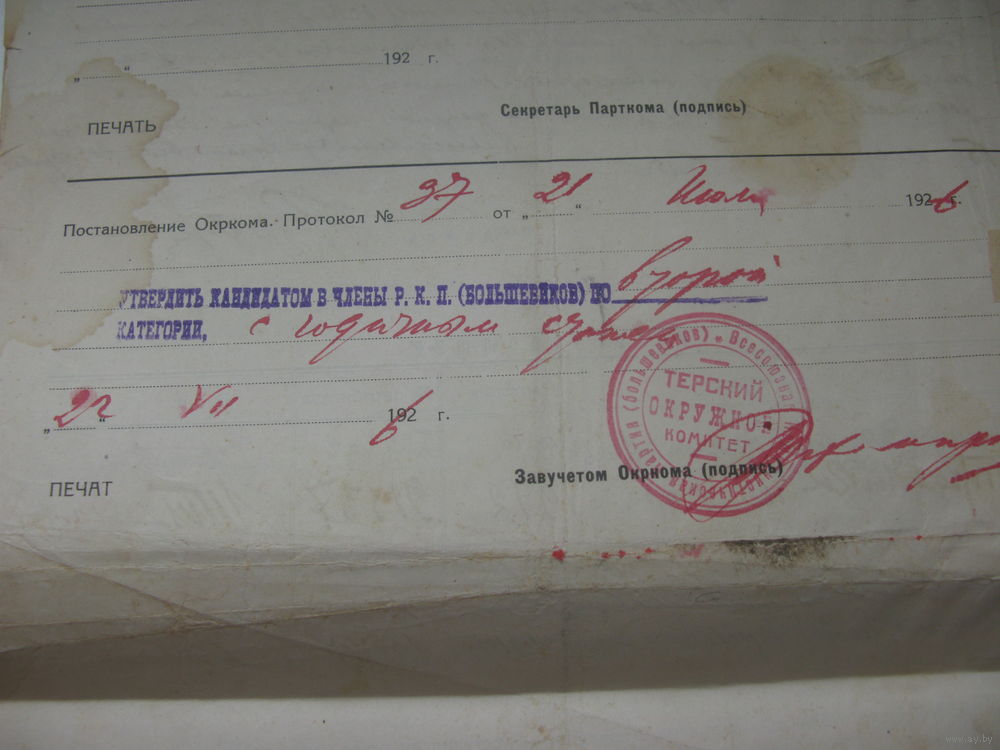 „ “ 192 г.
Секретарь Парткома (подпись)
ПЕЧАТЬ
Постановление Окркома. Протокол № 37 от „ 21 “ Июля 1926 г.
УТВЕРДИТЬ КАНДИДАТОМ В ЧЛЕНЫ Р. К. П. (БОЛЬШЕВИКОВ) ПО второй
КАТЕГОРИИ, с годичным стажем
„ 22 “ VII 1926 г.
Всесоюзная Коммунистическая Партия (большевиков)
ТЕРСКИЙ
ОКРУЖНОЙ
КОМИТЕТ
Завучетом Окркома (подпись)
ПЕЧАТ
www.ay.by